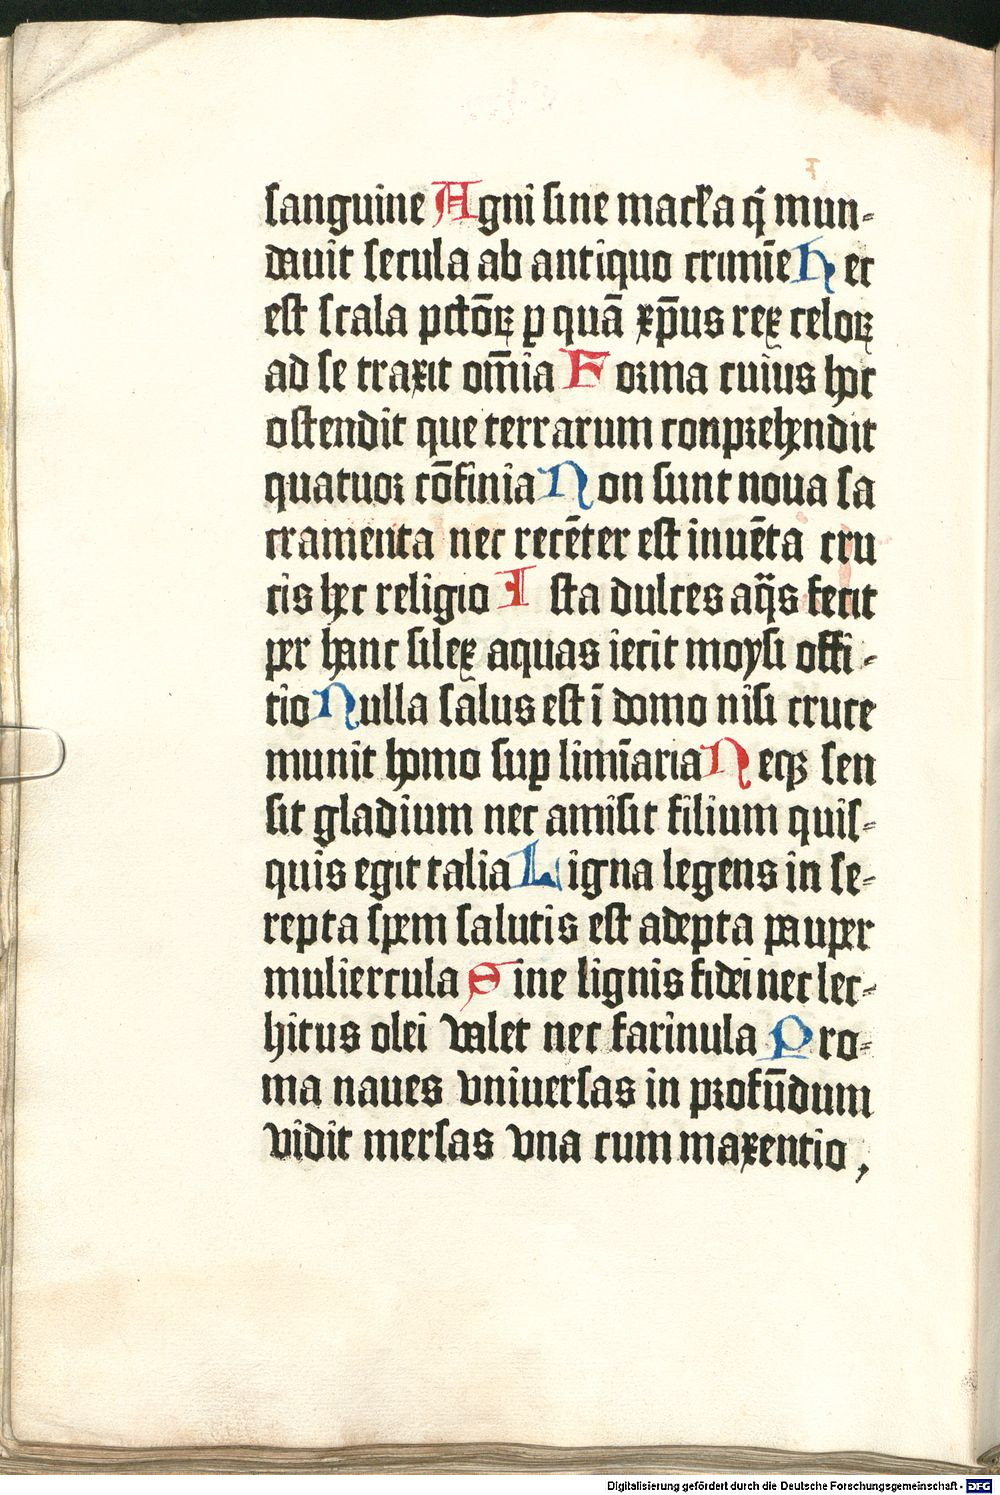 sanguine Agni sine macl'a q̇ mun⸗
dauit secula ab antiquo crimīe H ec
est scala pctōꝝ ꝑ quā xp̄us rex celoꝝ
ad se traxit om̄ia F orma cuius hec
ostendit que terrarum conprehendit
quatuor cōfinia N on sunt noua sa
cramenta nec recēter est inuēta cru
cis hec religio I sta dulces aq̈s fecit
per hanc silex aquas iecit moysi offi⸗
cio Nulla salus est ī domo nisi cruce
munit homo suꝑ limīaria N eqꝫ sen
sit gladium nec amisit filium quis⸗
quis egit talia L igna legens in se⸗
repta spem salutis est adepta pauper
muliercula S ine lignis fidei nec lec⸗
hitus olei valet nec farinula P ro⸗
ma naues vniuersas in profūdum
vidit mersas vna cum maxentio,
Digitalisierung gefördert durch die Deutsche Forschungsgemeinschaft - DFG